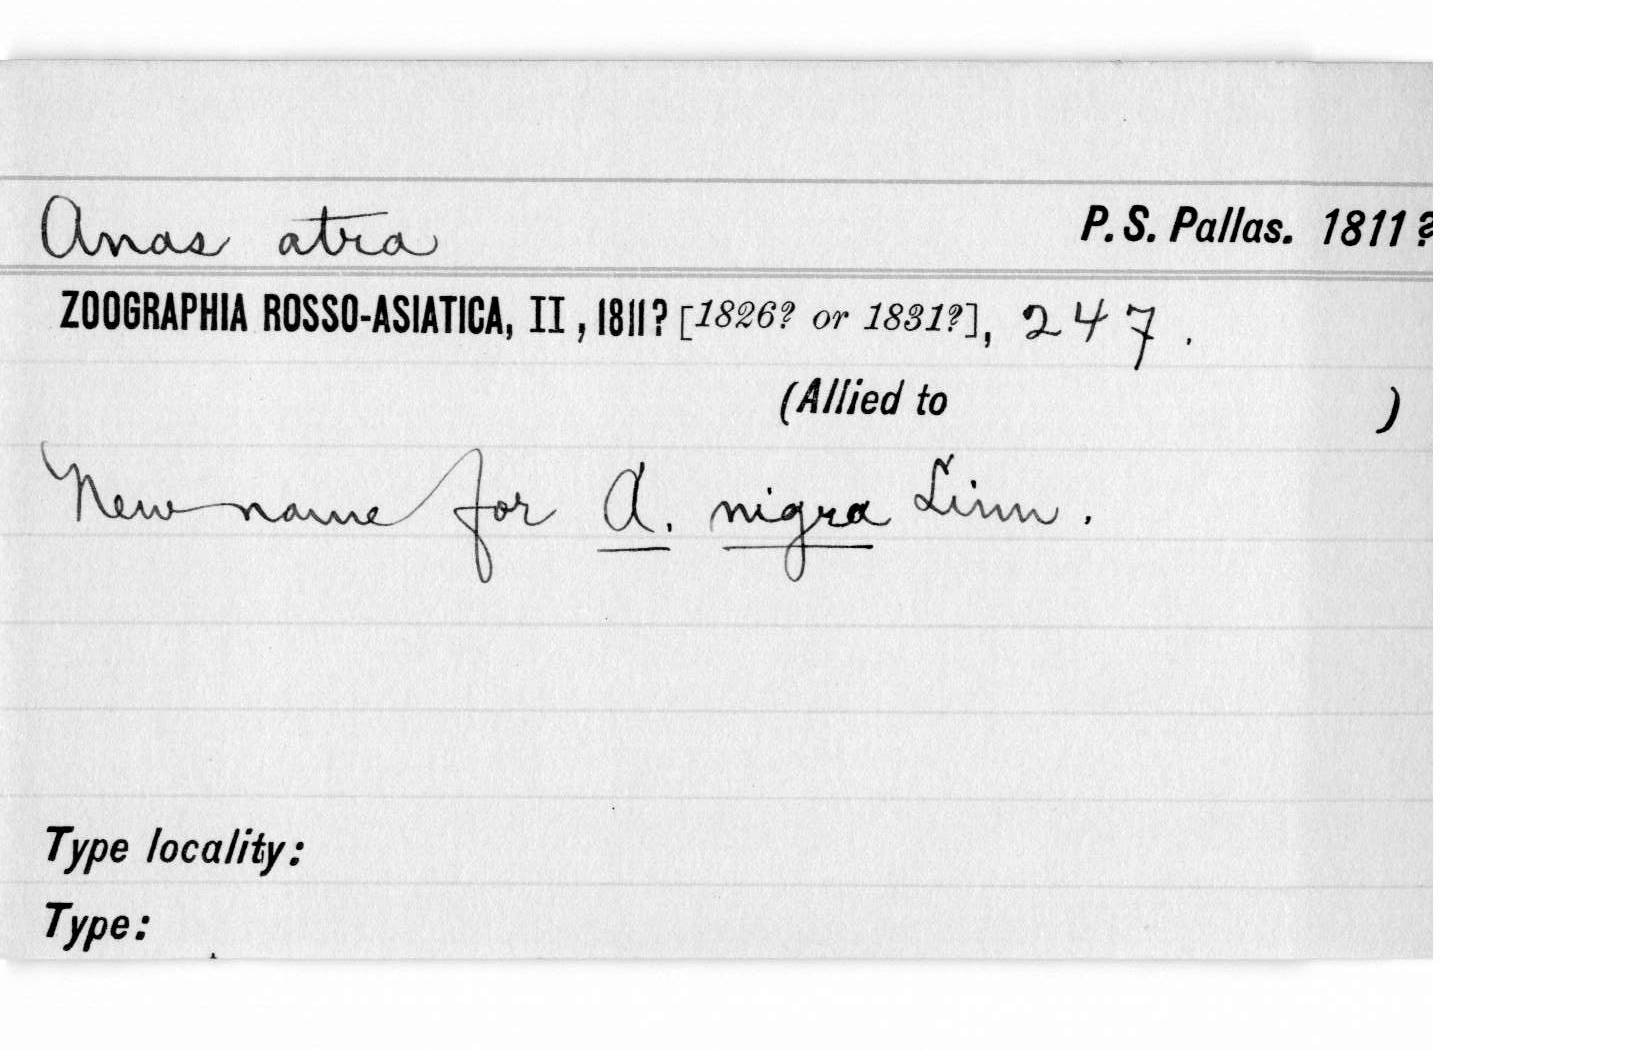 Anas atra P. S. Pallas. 1811?
ZOOGRAPHIA ROSSO-ASIATICA, II, 1811? [1826? or 1831?], 247.
(Allied to )
New name for A. nigra Linn.
Type locality:
Type: